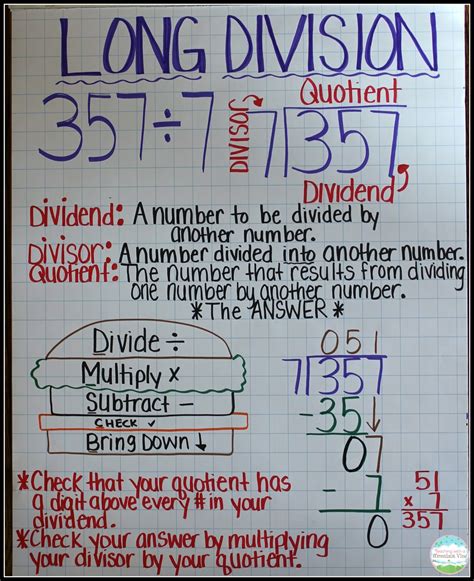 LONG DIVISION
357÷7
DIVISOR
Quotient
7 357
Dividend
Dividend: A number to be divided by
another number.
Divisor: A number divided into another number.
Quotient: The number that results from dividing
one number by another number.
*The ANSWER*
Divide ÷
Multiply x
Subtract –
CHECK ✓
Bring Down ↓
051
7 357
-35↓
07
-7
0
51
x 7
357
*Check that your quotient has
a digit above every # in your
dividend.
*Check your answer by multiplying
your divisor by your quotient.
Teaching with a
Mountain View